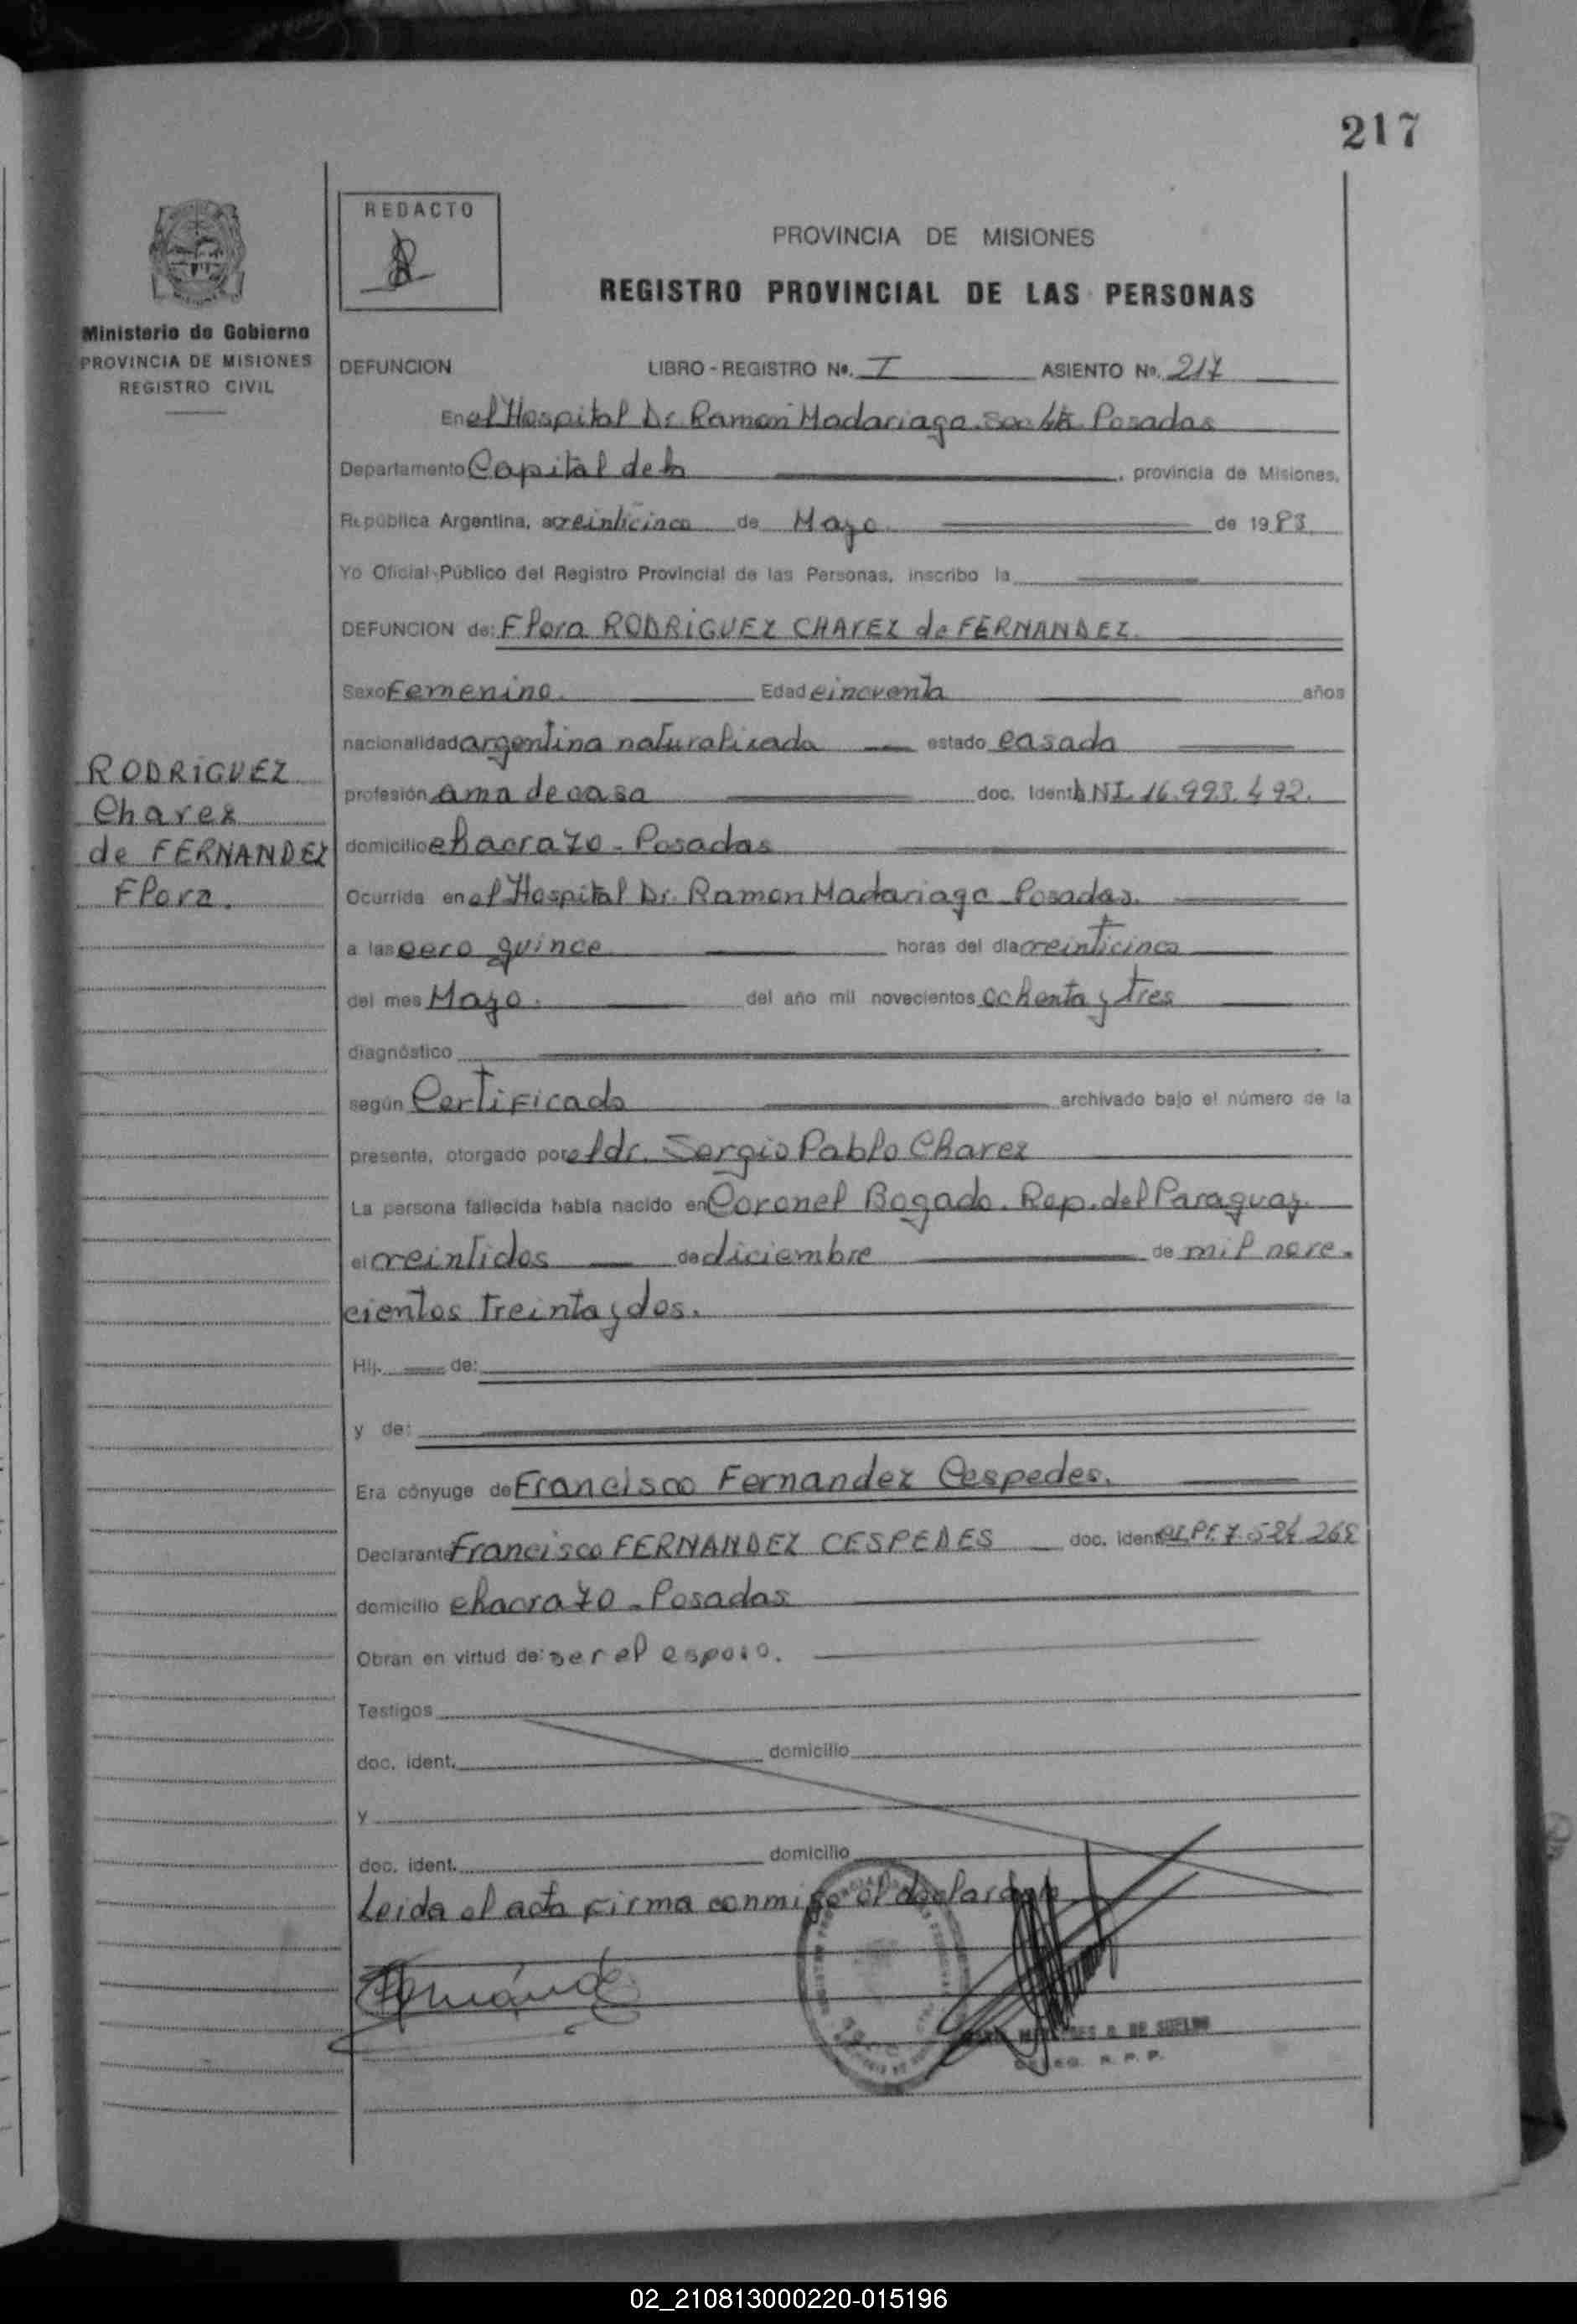 217
REDACTO
PROVINCIA DE MISIONES
REGISTRO PROVINCIAL DE LAS PERSONAS
Ministerio de Gobierno
PROVINCIA DE MISIONES
REGISTRO CIVIL
DEFUNCION LIBRO - REGISTRO Nº. I ASIENTO Nº. 217
En el Hospital Dr. Ramon Madariaga Posadas
Departamento Capital de la , provincia de Misiones,
República Argentina, a veinticinco de Mayo de 1983
Yo Oficial Público del Registro Provincial de las Personas, inscribo la
DEFUNCION de: Flora RODRIGUEZ CHAVEZ de FERNANDEZ
Sexo Femenino. Edad cincuenta años
nacionalidad argentina naturalizada estado casada
profesión ama de casa doc. Ident. DNI. 16.993.492.
domicilio chacra 70 - Posadas
Ocurrida en el Hospital Dr. Ramon Madariaga Posadas.
a las cero quince horas del día veinticinco
del mes Mayo. del año mil novecientos ochenta y tres
diagnóstico
según Certificado archivado bajo el número de la
presente, otorgado por el dr. Sergio Pablo Chavez
La persona fallecida había nacido en Coronel Bogado. Rep. del Paraguay
el veintidos de diciembre de mil nove-
cientos treinta y dos.
Hij. de:
y de:
Era cónyuge de Francisco Fernandez Cespedes.
Declarante Francisco FERNANDEZ CESPEDES doc. ident.
domicilio chacra 70 - Posadas
Obran en virtud de: ser el esposo.
Testigos
doc. ident. domicilio
y
doc. ident. domicilio
Leida el acta firma conmigo el declarante
RODRIGUEZ
Chavez
de FERNANDEZ
Flora.
R. P. P.
02_210813000220-015196